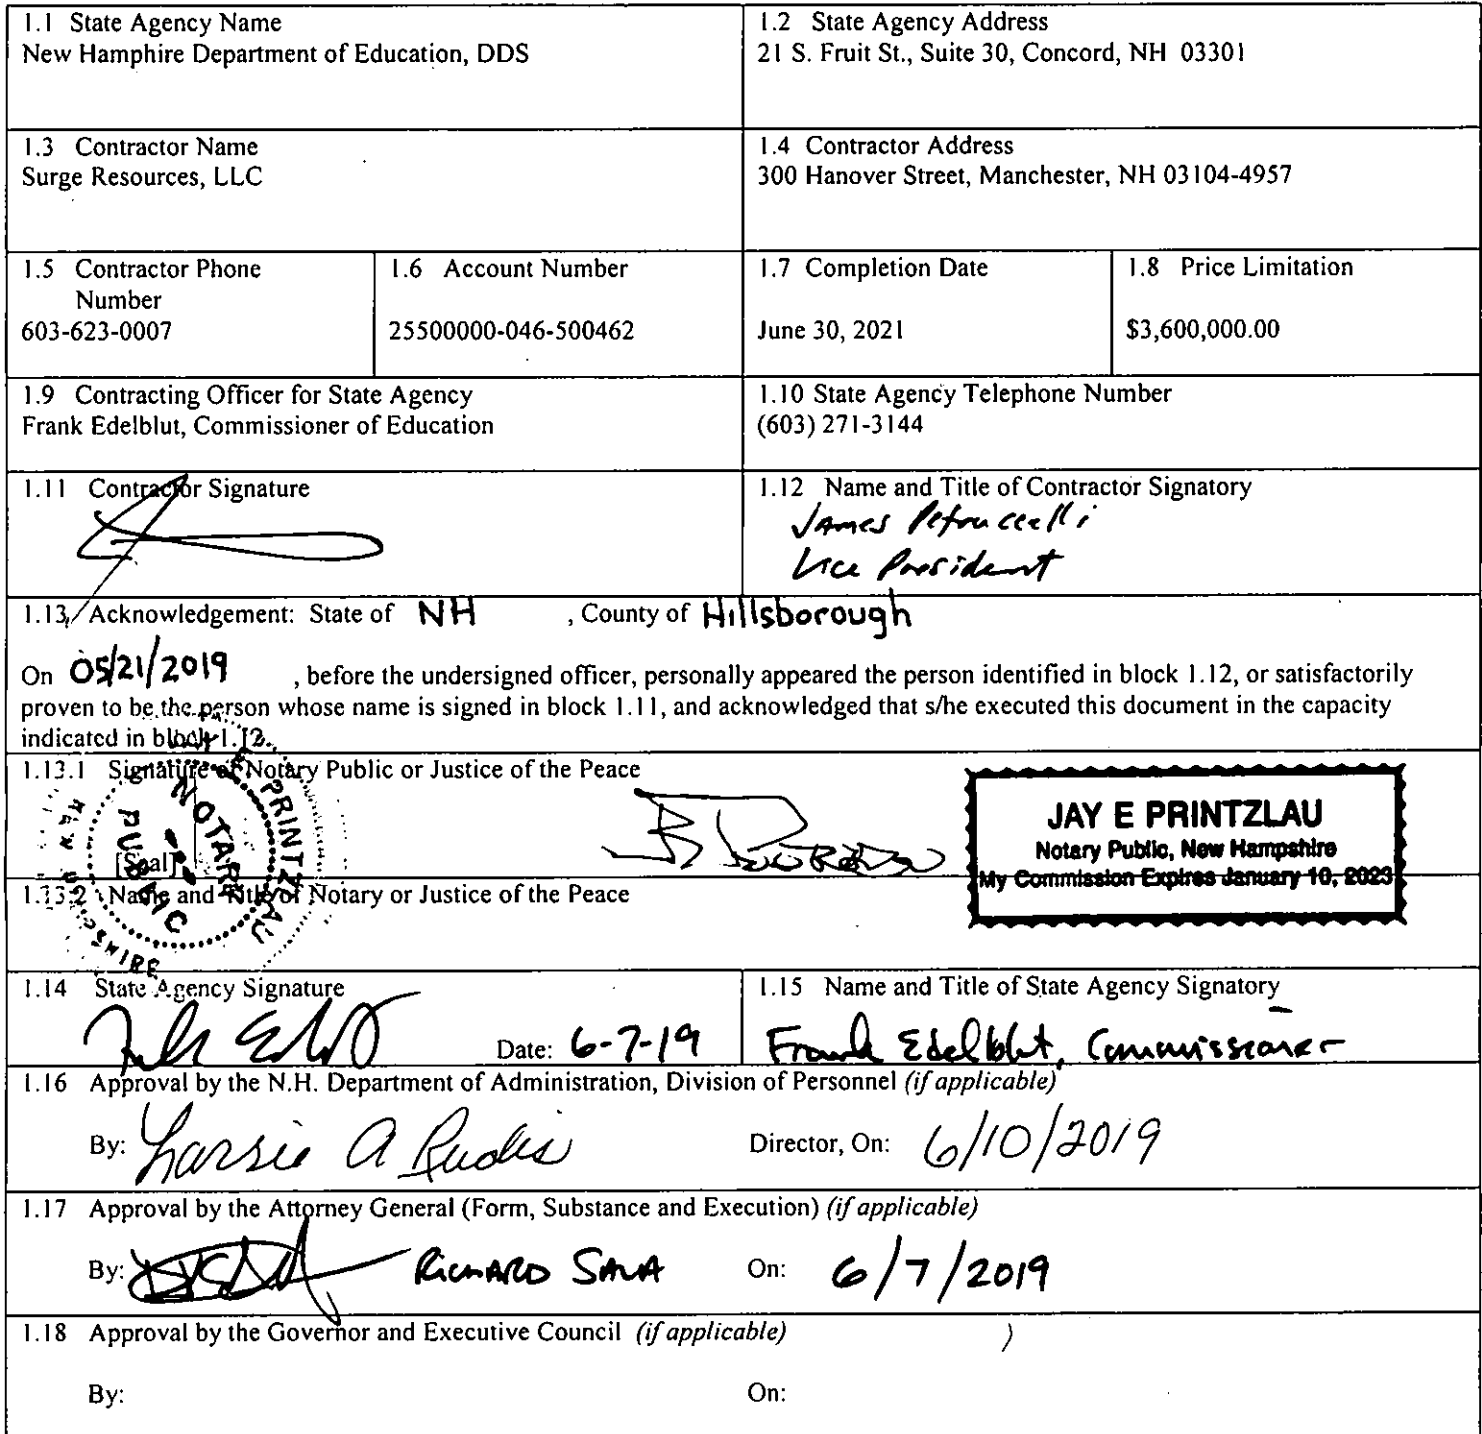 1.1 State Agency Name
New Hamphire Department of Education, DDS
1.2 State Agency Address
21 S. Fruit St., Suite 30, Concord, NH 03301
1.3 Contractor Name
Surge Resources, LLC
1.4 Contractor Address
300 Hanover Street, Manchester, NH 03104-4957
1.5 Contractor Phone
Number
603-623-0007
1.6 Account Number
25500000-046-500462
1.7 Completion Date
June 30, 2021
1.8 Price Limitation
$3,600,000.00
1.9 Contracting Officer for State Agency
Frank Edelblut, Commissioner of Education
1.10 State Agency Telephone Number
(603) 271-3144
1.11 Contractor Signature
1.12 Name and Title of Contractor Signatory
James Petruccelli
Vice President
1.13 Acknowledgement: State of NH , County of Hillsborough
On 05/21/2019 , before the undersigned officer, personally appeared the person identified in block 1.12, or satisfactorily
proven to be the person whose name is signed in block 1.11, and acknowledged that s/he executed this document in the capacity
indicated in block 1.12.
1.13.1 Signature of Notary Public or Justice of the Peace
[Seal]
E PRINTZLAU
NOTARY
PUBLIC
NEW HAMPSHIRE
JAY E PRINTZLAU
Notary Public, New Hampshire
My Commission Expires January 10, 2023
1.13.2 Name and Title of Notary or Justice of the Peace
1.14 State Agency Signature
Date: 6-7-19
1.15 Name and Title of State Agency Signatory
Frank Edelblut, Commissioner
1.16 Approval by the N.H. Department of Administration, Division of Personnel (if applicable)
By: Director, On: 6/10/2019
1.17 Approval by the Attorney General (Form, Substance and Execution) (if applicable)
By: RICHARD SALA On: 6/7/2019
1.18 Approval by the Governor and Executive Council (if applicable)
By: On: